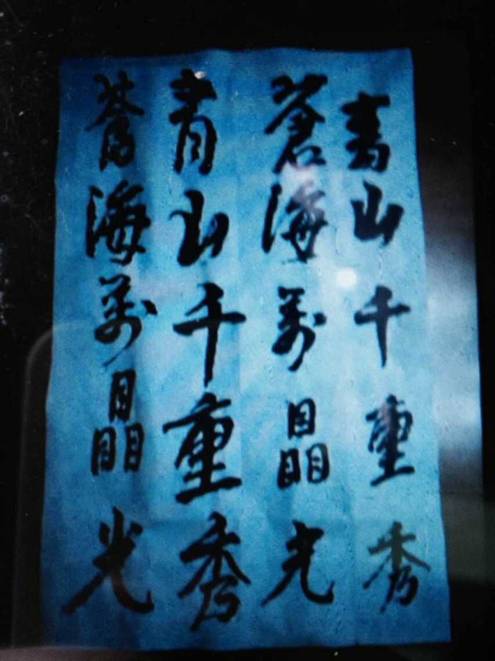 青山千重秀
蒼海萬晶光
青山千重秀
蒼海萬晶光